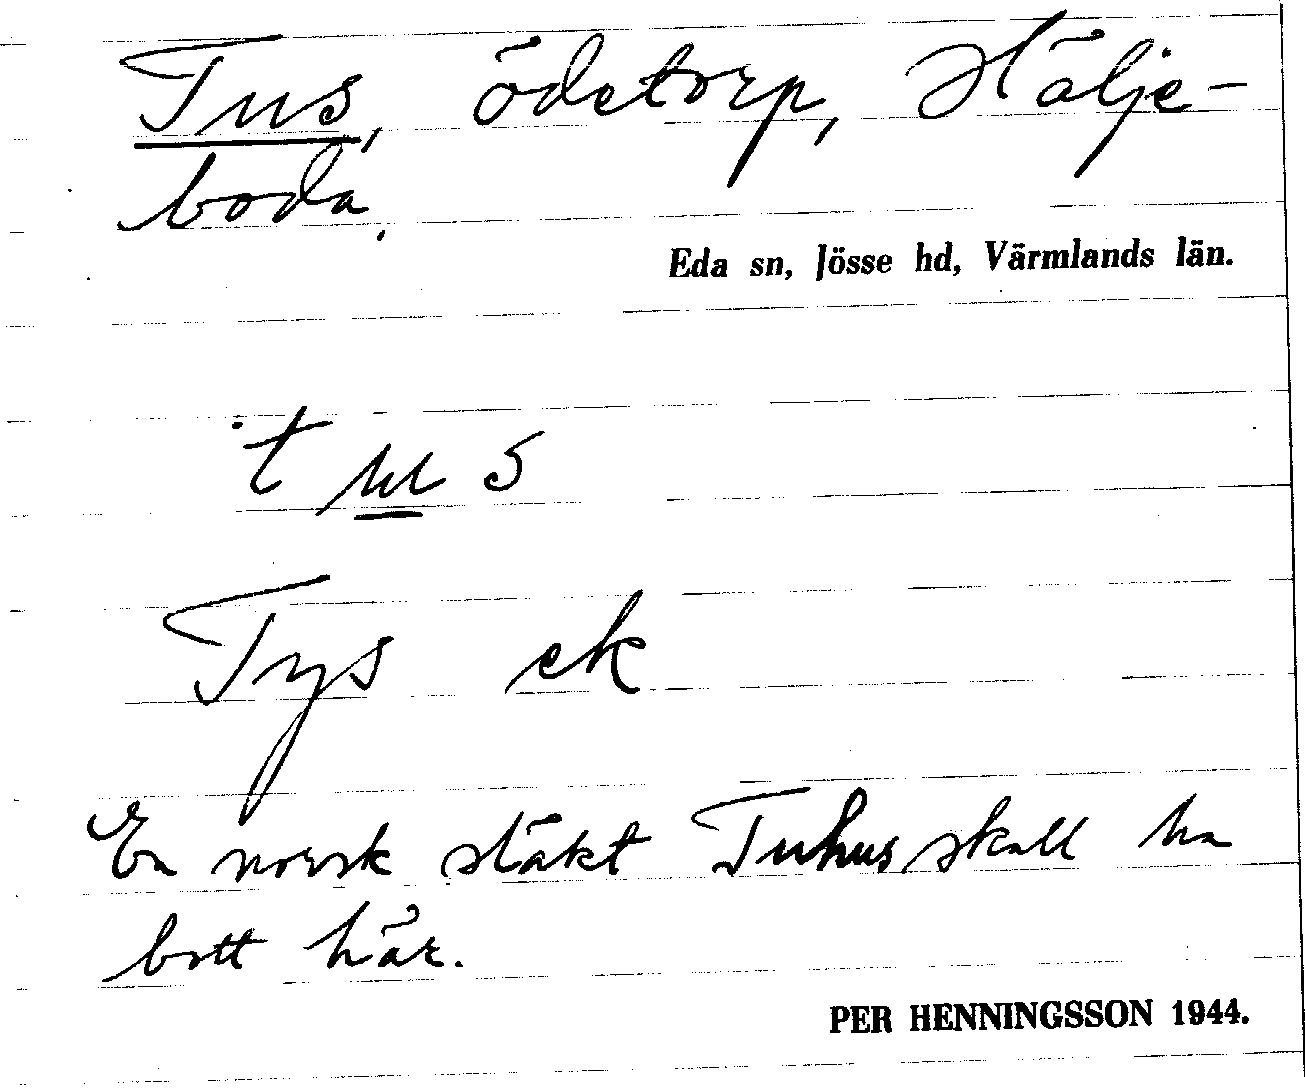 Tus, ödetorp, Hälje-
boda.
Eda sn, Jösse hd, Värmlands län.
tus
Tys ek
En norsk släkt Tuhus skall ha
bott här.
PER HENNINGSSON 1944.